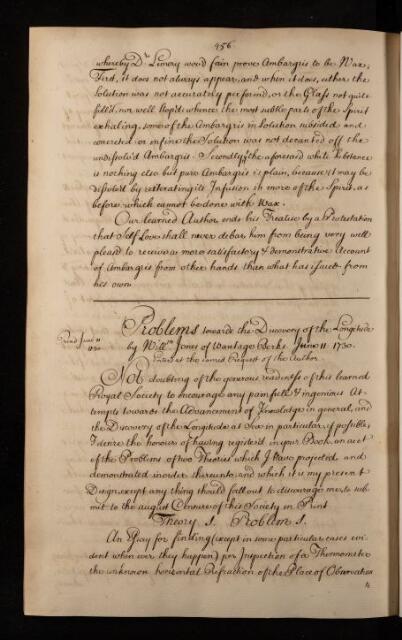 456
whereby Dr Limery would fain prove Ambargris to be Wax,
First, it does not always appear, and when it does, either the
Solution was not accurately perform'd, or the Glass not quite
fill'd, nor well stop'd; whence the most subtle parts of the Spirit
exhaling, some of the Ambargris in Solution subsided and
concreted or in fine the Solution was not decanted off the
undissolv'd Ambargris. Secondly, the aforesaid white Substance
is nothing else but pure Ambargris is plain, because it may be
dissolv'd by reiterating its Infusion in more of the Spirit, as
before, which cannot be done with Wax.
Our learned Author ends his Treatise by a Protestation
that Self Love shall never debar him from being very well
pleas'd to receive a more satisfactory & demonstrative Account
of Ambargris from other hands than what has issued from
his own
Problems towards the Discovery of the Longitude
Read June 11
1730
by Willm Jones of Wantage Berks June 11 1730.
at the earnest Request of the Author
Not doubting of the generous readiness of this learned
Royal Society to encourage any painfull & ingenious At
tempts towards the Advancement of Knowledge in general, and
the Discovery of the Longitude at Sea in particular, if possible,
I desire the honour of having register'd in your Book, an acct
of the Problems of two Theories which I have projected, and
demonstrated in order thereunto, and which it is my present
Design, except any thing should fall out to discourage me, to sub
mit to the august Censure of this Society in Print
Theory 1. Problem 1.
An Essay for finding (except in some particular cases evi
dent when ever they happen) per Inspection of a Thermometer
the unknown horizontal Refraction of the Place of Observation